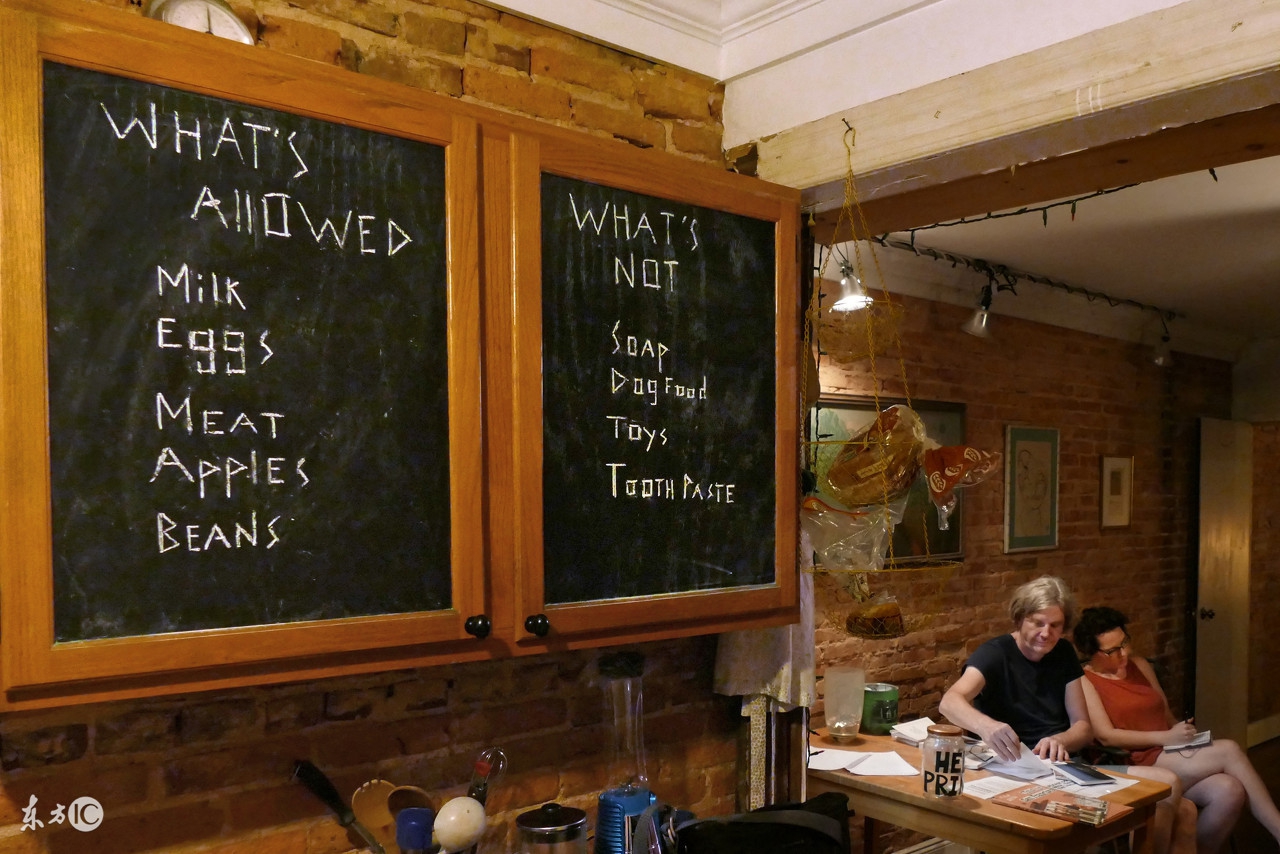 WHAT'S
AllOWED
Milk
Eggs
MEAT
Apples
BEANS
WHAT'S
NOT
SOAP
Dog Food
Toys
TOOTH PASTE
HE
PRI
东方IC